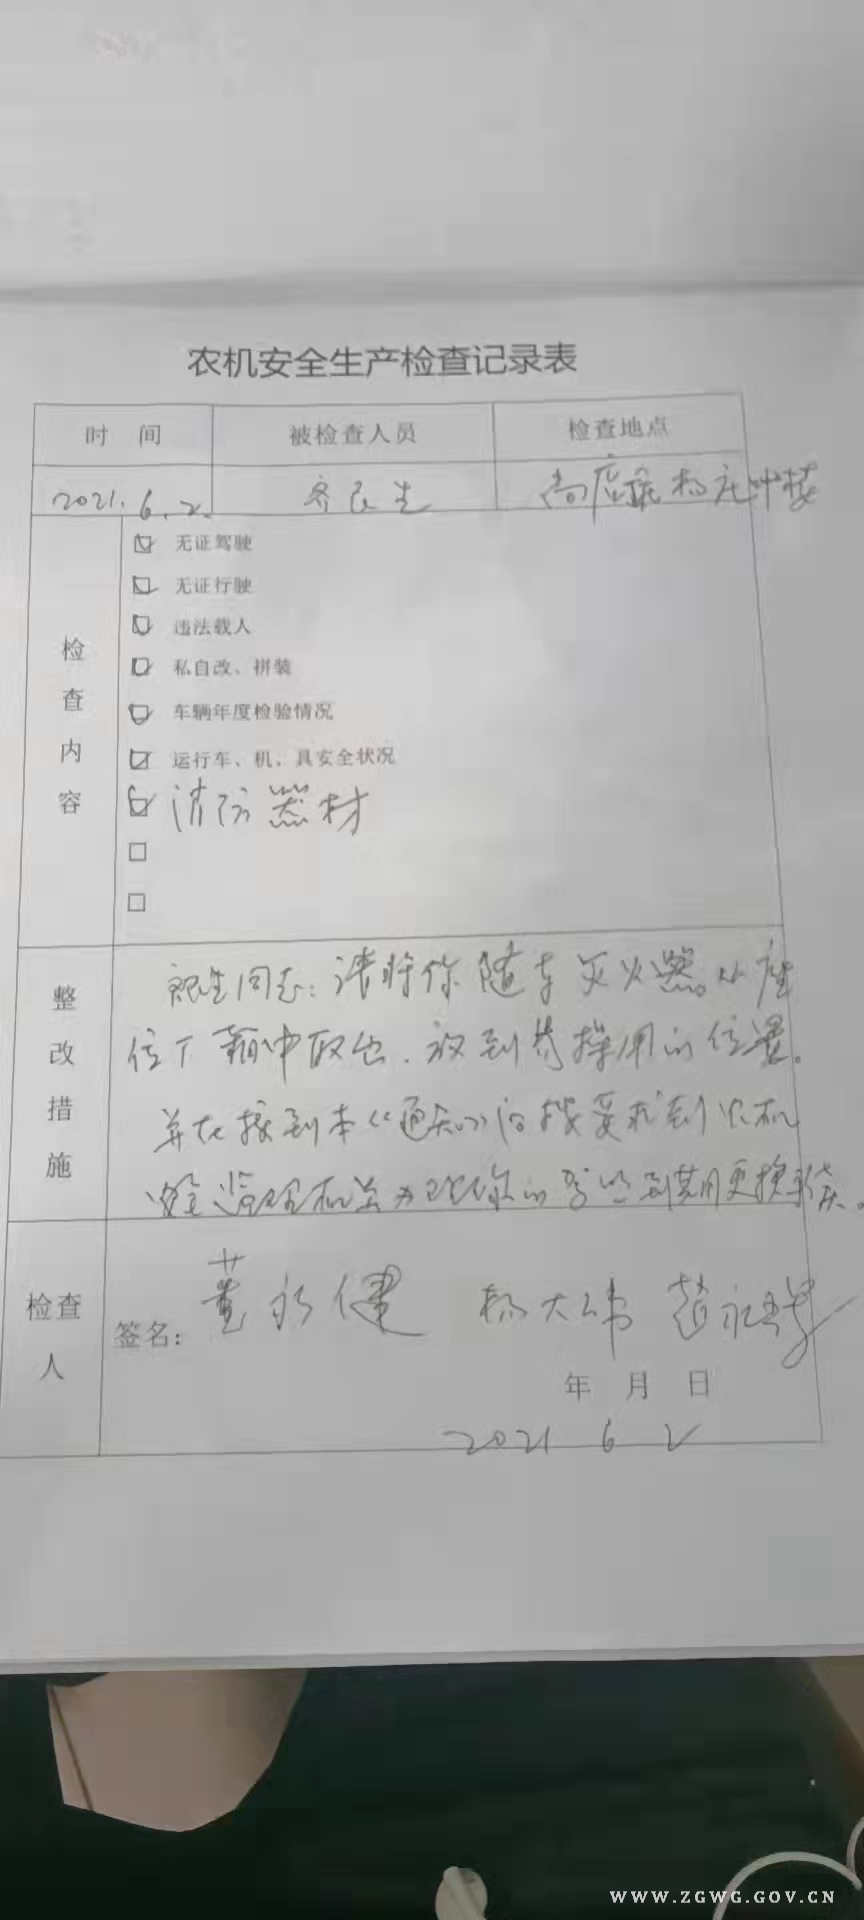 农机安全生产检查记录表
时 间 被检查人员 检查地点
2021.6.2. 齐良生 尚店镇杨庄
检查内容
无证驾驶
无证行驶
违法载人
私自改、拼装
车辆年度检验情况
运行车、机、具安全状况
消防器材
整改措施
同志：请将你随车灭火器从座
位下箱中取出，放到易操作的位置。
并在接到本《通知》后按要求到农机
安全监理机关办理你的驾照到期更换手续。
检查人
签名： 董永健 杨大伟 赵永
年 月 日
2021 6 2
WWW.ZGWG.GOV.CN